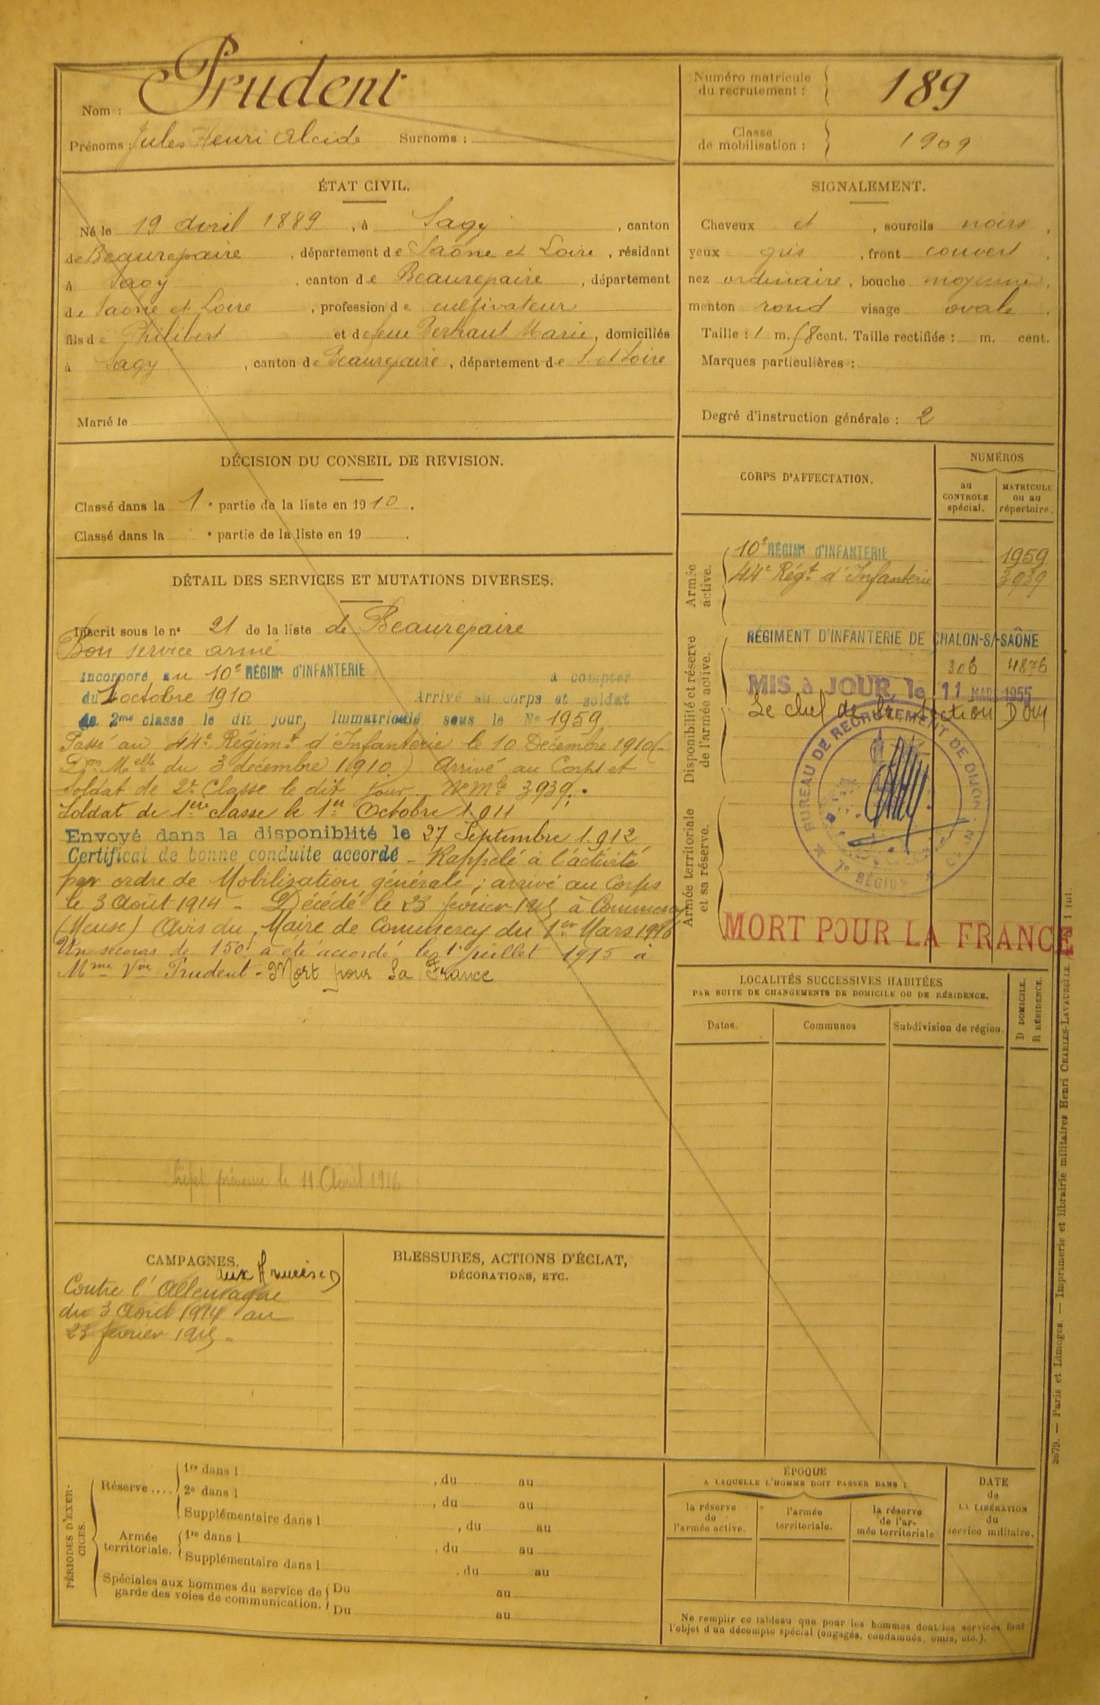 Nom : Prudent
Prénoms : Jules Henri Alcide Surnoms :
Numéro matricule du recrutement : 189
Classe de mobilisation : 1909
ÉTAT CIVIL.
Né le 19 avril 1889, à Sagy, canton
de Beaurepaire, département de Saône et Loire, résidant
à Sagy, canton de Beaurepaire, département
de Saône et Loire, profession de cultivateur
fils de Philibert et de feue Marie, domiciliés
à Sagy, canton de Beaurepaire, département de S. et Loire
Marié le
SIGNALEMENT.
Cheveux et, sourcils noirs,
yeux gris, front couvert
nez ordinaire, bouche moyenne,
menton rond visage ovale.
Taille : 1 m. 58 cent. Taille rectifiée : m. cent.
Marques particulières :
Degré d'instruction générale : 2
DÉCISION DU CONSEIL DE REVISION.
Classé dans la 1e partie de la liste en 1910.
Classé dans la e partie de la liste en 19 .
DÉTAIL DES SERVICES ET MUTATIONS DIVERSES.
Inscrit sous le n° 21 de la liste de Beaurepaire
Bon service armé
Incorporé au 10e RÉGIMt D'INFANTERIE à compter
du 1 octobre 1910 Arrivé au corps et soldat
de 2me classe le dit jour, Immatriculé sous le No 1959.
Passé au 44e Régimt d'Infanterie le 10 Décembre 1910 (
du 3 décembre 1910) Arrivé au Corps et
soldat de 2e Classe le dit jour. No Mle 3939.
Soldat de 1ere classe le 1er Octobre 1911
Envoyé dans la disponiblité le 27 Septembre 1912
Certificat de bonne conduite accordé - Rappelé à l'activité
par ordre de Mobilisation générale ; arrivé au Corps
le 3 Août 1914 - Décédé le 23 février 1915 à Commercy
(Meuse) Avis du Maire de Commercy du 1er Mars 1916
Un secours de 150f a été accordé le 1er juillet 1915 à
Mme Vve Prudent - Mort pour La France
prévenu le 11 Avril 1916
CORPS D'AFFECTATION.
NUMÉROS
au CONTROLE spécial.
MATRICULE ou au répertoire.
Armée active.
10e RÉGIMt D'INFANTERIE 1959
44e Régt d'Infanterie 3939
Disponibilité et réserve de l'armée active.
RÉGIMENT D'INFANTERIE DE CHALON-S/-SAÔNE
306 4876
MIS à JOUR, le 11 MARS 1955
Le chef de la section Dom
BUREAU DE RECRUTEMENT DE DIJON
7e RÉGION
Armée territoriale et sa réserve.
MORT POUR LA FRANCE
LOCALITÉS SUCCESSIVES HABITÉES
PAR SUITE DE CHANGEMENTS DE DOMICILE OU DE RÉSIDENCE.
Dates. Communes Subdivision de région. D DOMICILE. R RÉSIDENCE.
CAMPAGNES.
aux Armées
Contre l'Allemagne
du 3 Août 1914 au
23 février 1915 -
BLESSURES, ACTIONS D'ÉCLAT,
DÉCORATIONS, ETC.
PÉRIODES D'EXERCICES.
Réserve ....
1re dans l , du au
2e dans l , du au
Supplémentaire dans l , du au
Armée territoriale.
1re dans l , du au
Supplémentaire dans l , du au
Spéciales aux hommes du service de garde des voies de communication.
Du au
Du au
ÉPOQUE
A LAQUELLE L'HOMME DOIT PASSER DANS :
la réserve de l'armée active.
l'armée territoriale.
la réserve de l'armée territoriale
DATE de LA LIBÉRATION du service militaire.
Ne remplir ce tableau que pour les hommes dont les services font
l'objet d'un décompte spécial (engagés, condamnés, omis, etc.).
— Paris et Limoges. — Imprimerie et librairie militaires Henri CHARLES-LAVAUZELLE.